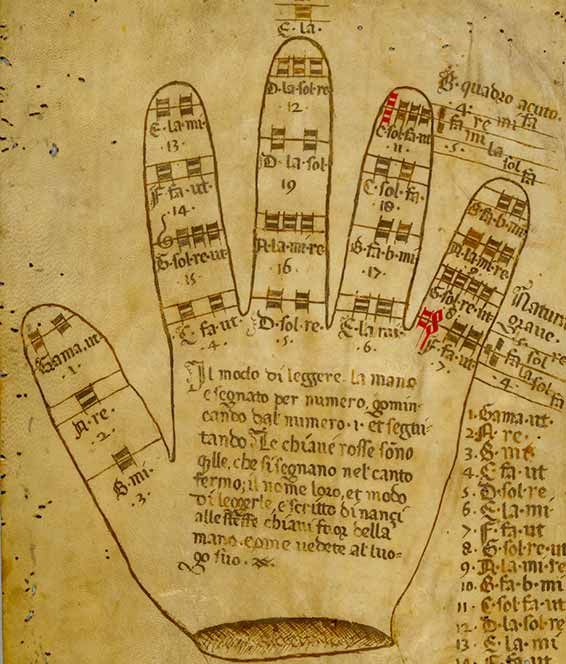 E·la·
D·la·sol·re
12·
D·la·sol·
19
A·la·mi·re
16·
D·sol·re·
·5·
E·la·mi·
13·
F·fa·ut
·14·
G·sol·re·ut
15·
C·fa·ut·
·4·
C·sol·fa·ut
11
C·sol·fa·
18·
B·fa·b·mi
·17·
E·la·mi·
·6·
B·quadro acuto·
·4· re mi fa
fa mi la
·5· sol fa
B·fa·b·mi
A·la·mi·re
G·sol·re·ut
8
F·fa·ut
·7·
Natura
grave·
sol fa
·4·
Gama·ut·
·1·
A·re·
·2·
B·mi·
·3·
Il modo di leggere la mano
e segnato per numero, gomin
cando dal numero ·1· et segui
tando· Le chiave rosse sono
q̃lle, che si segnano nel canto
fermo; il nome loro, et modo
di leggerle, e scritto di nançi
alle stesse chiavi fuor della
mano· come vedete al luo-
go suo·
1·Gama·ut·
2·A·re·
3·B·mi
4·C·fa·ut
5·D·sol·re
6·E·la·mi
7·F·fa·ut
8·G·sol·re·ut
9·A·la·mi·re
10·B·fa·b·mi
11·C·sol·fa·ut
12·D·la·sol·re
13·E·la·mi